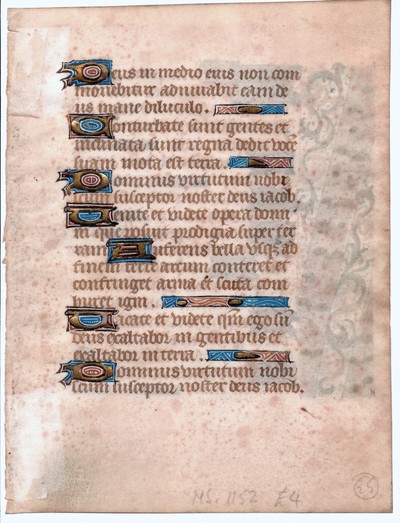 Deus in medio eius non com
movebitur adiuvabit eam de
us mane diluculo.
Conturbate sunt gentes et
inclinata sunt regna dedit voce
suam mota est terra.
Dominus virtutum nobi
scum susceptor noster deus iacob.
Venite et videte opera domi
ni que posuit prodigia super ter
ram Auferens bella usq; ad
finem terre arcum conteret et
confringet arma et scuta com
buret igni.
Vacate et videte qm ego sū
deus exaltabor in gentibus et
exaltabor in terra.
Dominus virtutum nobi
scum susceptor noster deus iacob.
MS. 1152 £4
25